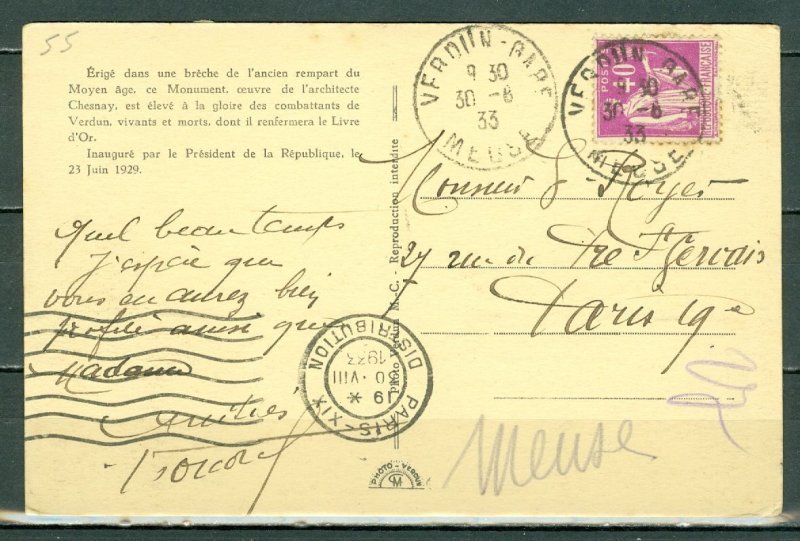 55
Érigé dans une brêche de l'ancien rempart du
Moyen âge, ce Monument, œuvre de l'architecte
Chesnay, est élevé à la gloire des combattants de
Verdun, vivants et morts, dont il renfermera le Livre
d'Or.
Inauguré par le Président de la République, le
23 Juin 1929.
Quel beau temps
J'espère que
vous en aurez bien
profité ainsi que
Madame
Amitiés
Photo Verdun M. C. - Reproduction interdite
VERDUN-GARE
9 30
30 -8
33
MEUSE
POSTES
REPUBLIQUE FRANÇAISE
VERDUN GARE
9 30
30 -8
33
MEUSE
Monsieur
27 rue du Pré St Gervais
Paris 19e
PARIS-XIX
19 *
30 · VIII
1933
DISTRIBUTION
PHOTO - VERDUN
CM
Meuse